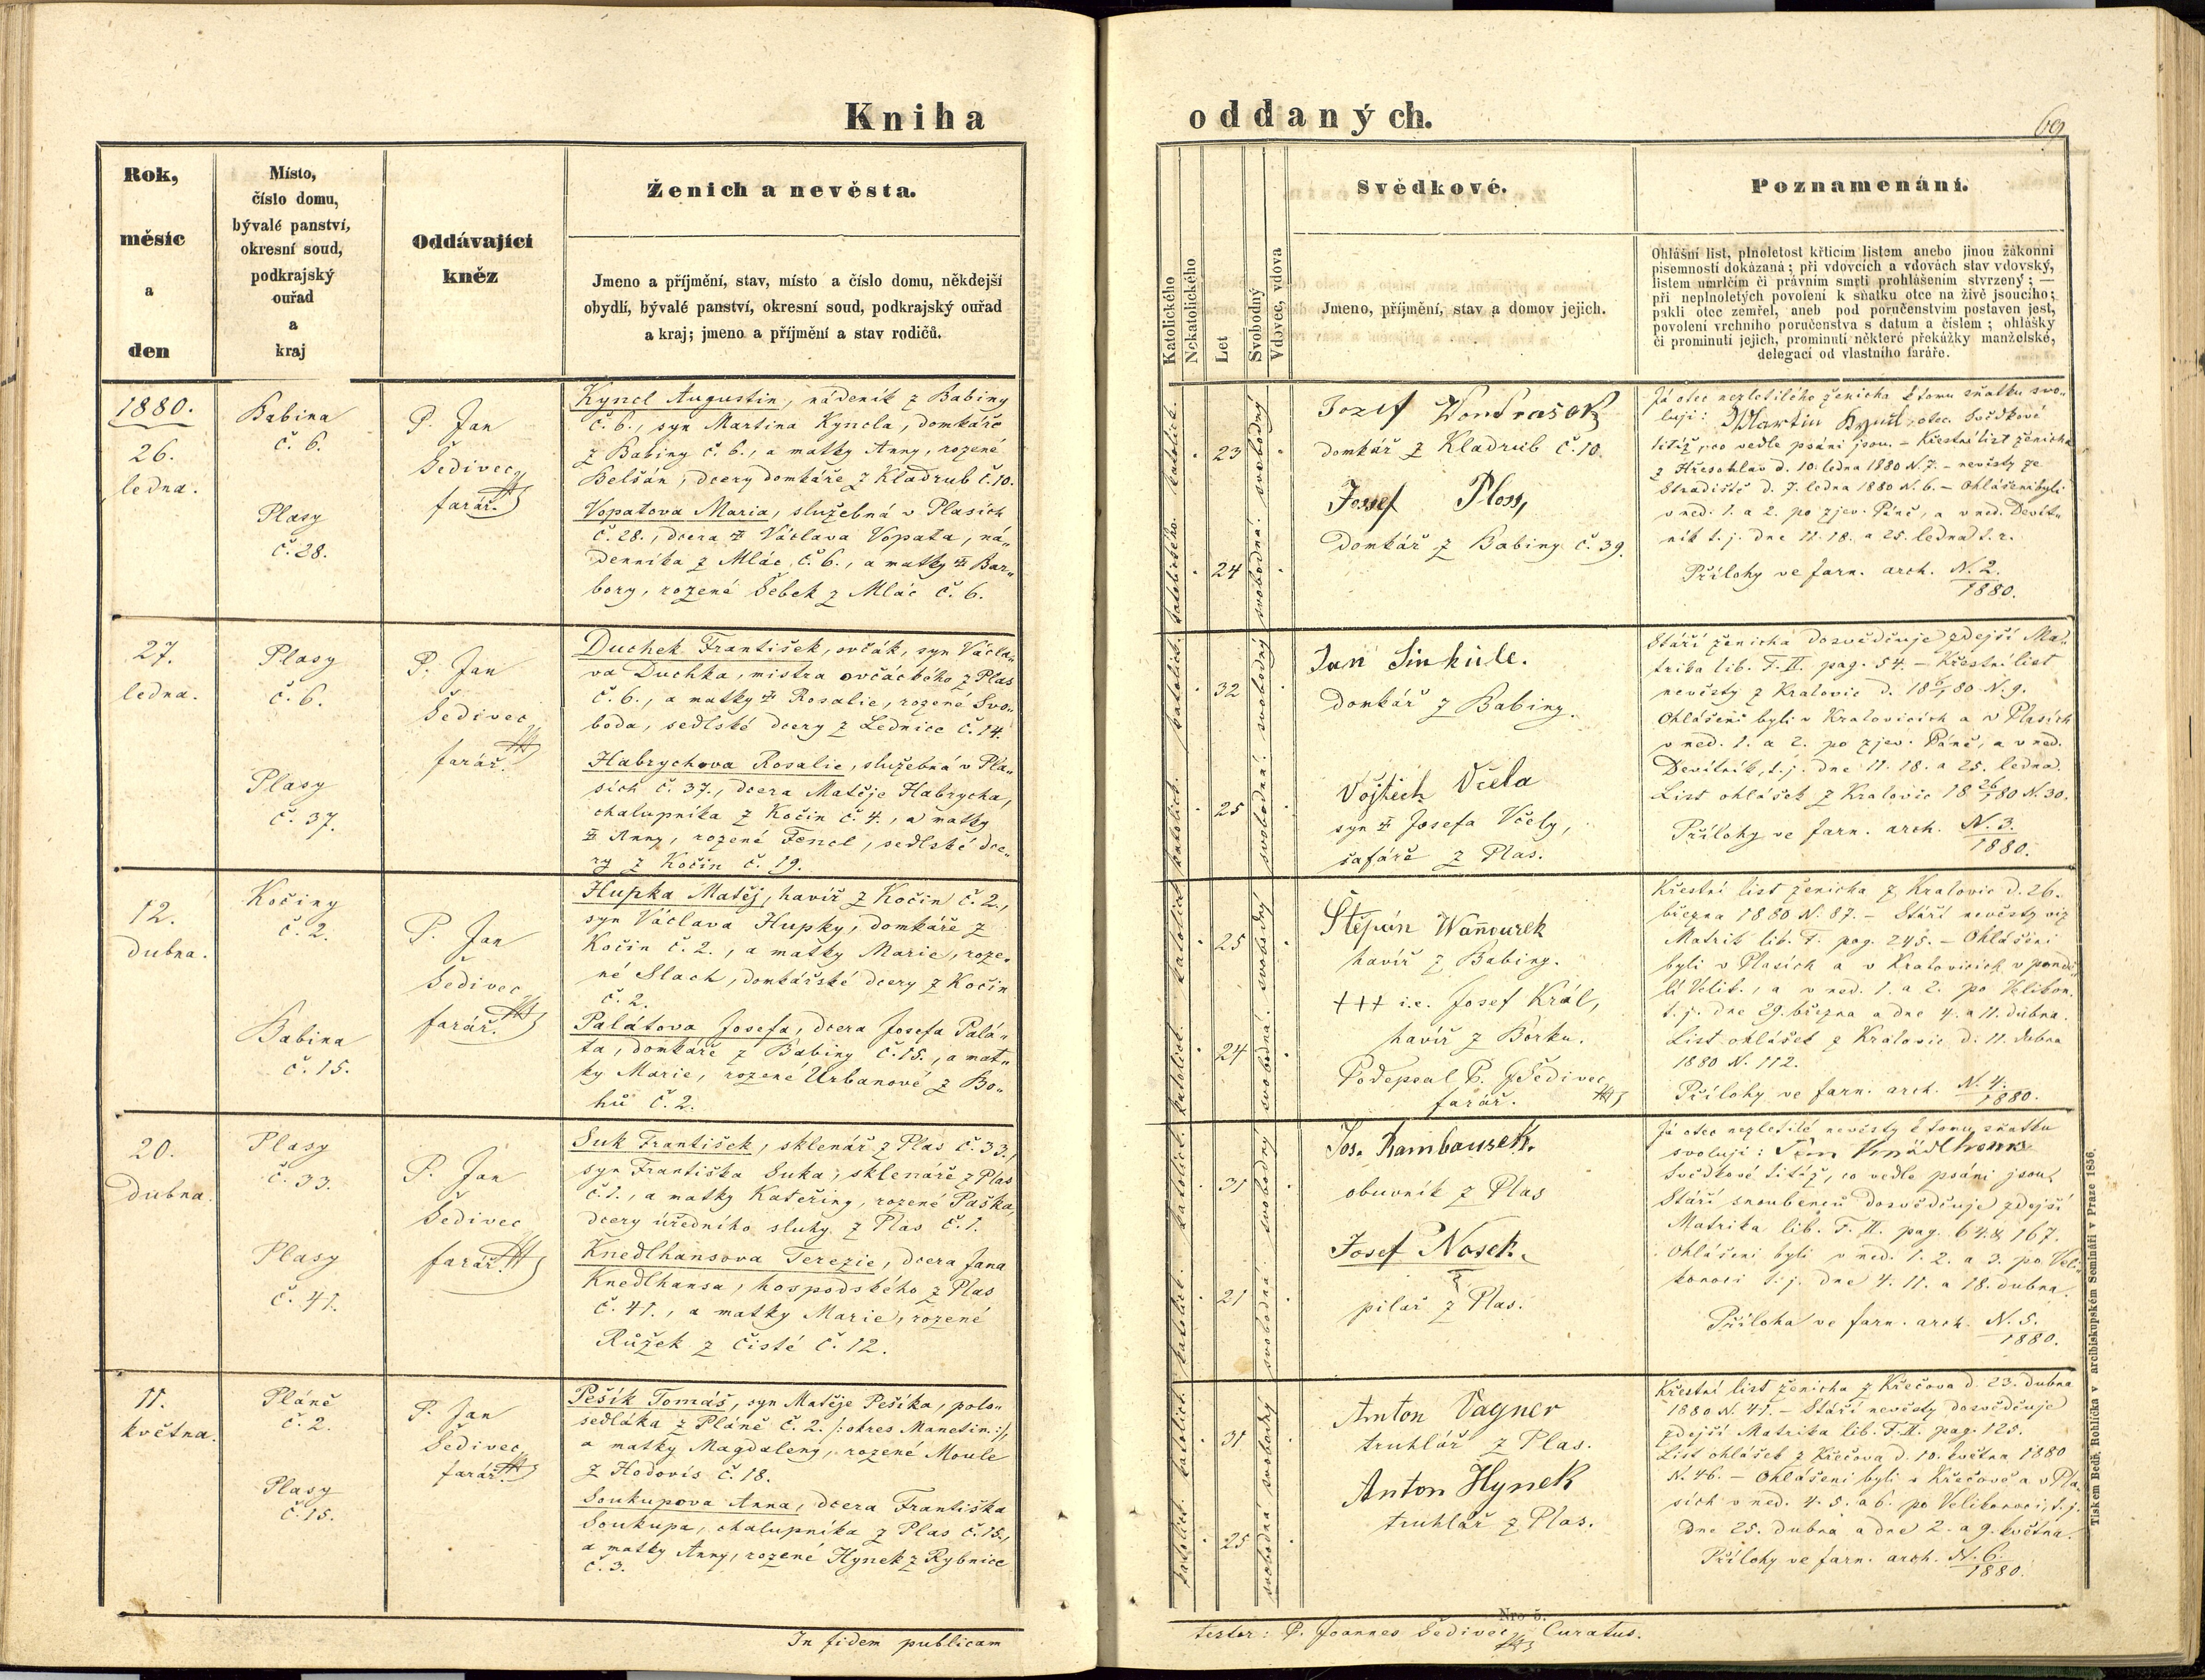 Kniha
oddaných.
69
Rok,
měsíc
a
den
Místo,
číslo domu,
bývalé panství,
okresní soud,
podkrajský
ouřad
a
kraj
Oddávající
kněz
Ženich a nevěsta.
Jmeno a příjmění, stav, místo a číslo domu, někdejší
obydlí, bývalé panství, okresní soud, podkrajský ouřad
a kraj; jmeno a příjmění a stav rodičů.
Katolického
Nekatolického
Let
Svobodný
Vdovec, vdova
Svědkové.
Jmeno, příjmění, stav a domov jejich.
Poznamenání.
Ohlášní list, plnoletost křticím listem anebo jinou žákonni
písemností dokázaná; při vdovcích a vdovách stav vdovský,
listem umrlčím či právním smrti prohlášením stvrzený; —
při neplnoletých povolení k sňatku otce na živě jsoucího;
pakli otec zemřel, aneb pod poručenstvím postaven jest,
povolení vrchního poručenstva s datum a číslem; ohlášky
či prominutí jejich, prominutí některé překážky manželské,
delegací od vlastního faráře.
1880.
26.
ledna.
Babina
č. 6.
Plasy
č. 28.
P. Jan
Šedivec,
farář.
Kyncl Augustin, nádeník z Babiny
č. 6., syn Martina Kyncla, domkáře
z Babiny č. 6., a matky Anny, rozené
Belšán, dcery domkáře z Kladrub č. 10.
Vopatova Maria, služebná v Plasích
č. 28., dcera Václava Vopata, ná„
denníka z Mlác č. 6., a matky Bar„
bory, rozené Šebek z Mláč č. 6.
katolick.
23
svobodný
katolického
24
svobodná
Jozef Wondrašek
domkář z Kladrub č. 10.
Jossef Ploss,
domkář z Babiny č. 39.
Já otec nezletilého ženicha k tomu sňatku svo„
luji: Martin Kyncl otec. Svědkové
titíž, co vedle psáni jsou. – Křestní list ženicha
z Hřesohlav d. 10. ledna 1880 N. 7. – nevěsty ze
Stradiště d. 7. ledna 1880 N. 6. – Ohlášeni byli
v ned. 1. a 2. po zjev. Páně, a v ned. Devít„
ník t. j. dne 11. 18. a 25. ledna t. r.
Přílohy ve farn. arch. N. 2.
1880.
27.
ledna.
Plasy
č. 6.
Plasy
č. 37.
P. Jan
Šedivec,
farář.
Duchek František, ovčák, syn Václa„
va Duchka, mistra ovčáckého z Plas
č. 6., a matky Rosalie, rozené Svo„
boda, sedlské dcery z Lednice č. 14.
Habrychova Rosalie, služebná v Pla„
sích č. 37., dcera Matěje Habrycha,
chalupníka z Kočín č. 4., a matky
Anny, rozené Fencl, sedlské dce„
ry z Kočín č. 19.
katolick.
32
svobodný
katolick.
25
svobodná
Jan Sinkule.
Domkář z Babiny.
Vojtěch Včela
syn Josefa Včely,
šafáře z Plas.
Stáří ženicha dosvědčuje zdejší Ma„
trika lib. T. II. pag. 54. – Křestní list
nevěsty z Kralovic d. 18 6/1 80 N. 9.
Ohlášeni byli v Kralovicích a v Plasích
v ned. 1. a 2. po zjev. Páně, a v ned.
Devítník, t. j. dne 11. 18. a 25. ledna.
List ohlášek z Kralovic 18 26/1 80 N. 30.
Přílohy ve farn. arch. N. 3.
1880.
12.
dubna.
Kočiny
č. 2.
Babina
č. 15.
P. Jan
Šedivec
farář.
Hupka Matěj, havíř z Kočín č. 2.,
syn Václava Hupky, domkáře z
Kočín č. 2., a matky Marie, roze„
né Slach, domkářské dcery z Kočín
č. 2.
Palátova Josefa, dcera Josefa Palá„
ta, domkáře z Babiny č. 15., a mat„
ky Marie, rozené Urbanové z Bo„
hů č. 2.
katolick.
25
svobodný
katolick.
24
svobodná
Štěpán Waňourek
havíř z Babiny.
+++ i.e. Josef Král,
havíř z Borku.
Podepsal P. J Šedivec,
farář.
Křestní list ženicha z Kralovic d. 26.
března 1880 N. 87. – Stáří nevěsty viz
Matrik lib. T. pag. 245. – Ohlášeni
byli v Plasích a v Kralovicích v pondě„
lí Velik., a v ned. 1. a 2. po Velikon.
t. j. dne 29. března a dne 4. a 11. dubna.
List ohlášek z Kralovic d. 11. dubna
1880 N. 112.
Přílohy ve farn. arch. N. 4.
1880.
20.
Dubna.
Plasy
č. 33.
Plasy
č. 41.
P. Jan
Šedivec
farář.
Suk František, sklenář z Plas č. 33.,
syn Františka Suka, sklenáře z Plas
č. 1., a matky Kateřiny, rozené Paška,
dcery úředního sluhy z Plas č. 1.
Knedlhansova Terezie, dcera Jana
Knedlhansa, hospodského z Plas
č. 41., a matky Marie, rozené
Růžek z Čisté č. 12.
katolick.
31
svobodný
katolick.
21
svobodná
Jos. Rambousek.
obuvník z Plas
Josef Nosek.
pilař z Plas.
Já otec nezletilé nevěsty k tomu sňatku
svoluji:
Svědkové titíž, co vedle psáni jsou.
Stáří snoubenců dosvědčuje zdejší
Matrika lib. T. II. pag. 64. & 167.
Ohlášeni byli v ned. 1. 2. a 3. po Veli„
konoci t. j. dne 4. 11. a 18. dubna.
Příloha ve farn. arch. N. 5.
1880.
11.
května.
Pláně
č. 2.
Plasy
č. 15.
P. Jan
Šedivec,
farář.
Pešík Tomáš, syn Matěje Pešíka, polo„
sedláka z Pláně č. 2. /: okres Manetín :/,
a matky Magdaleny, rozené Moule
z Hodovis č. 18.
Soukupova Anna, dcera Františka
Soukupa, chalupníka z Plas č. 15.,
a matky Anny, rozené Hynek z Rybnice
č. 3.
katolick.
31
svobodný
katolick.
25
svobodná
Anton Vagner
truhlář z Plas.
Anton Hynek
truhlář z Plas.
Křestní list ženicha z Křečova d. 23. dubna
1880 N. 41. – Stáří nevěsty dosvědčuje
zdejší Matrika lib. T. II. pag. 125.
List ohlášek z Křečova d. 10. května 1880
N. 46. – Ohlášeni byli v Křečově a v Pla„
sích v ned. 4. 5. a 6. po Velikonoci, t. j.
dne 25. dubna a dne 2. a 9. května.
Přílohy ve farn. arch. N. 6.
1880.
In fidem publicam
Nro 5.
testor: P. Joannes Šedivec, Curatus.
Tiskem Bedř. Rohlíčka v arcibiskupském Semináři v Praze 1856.